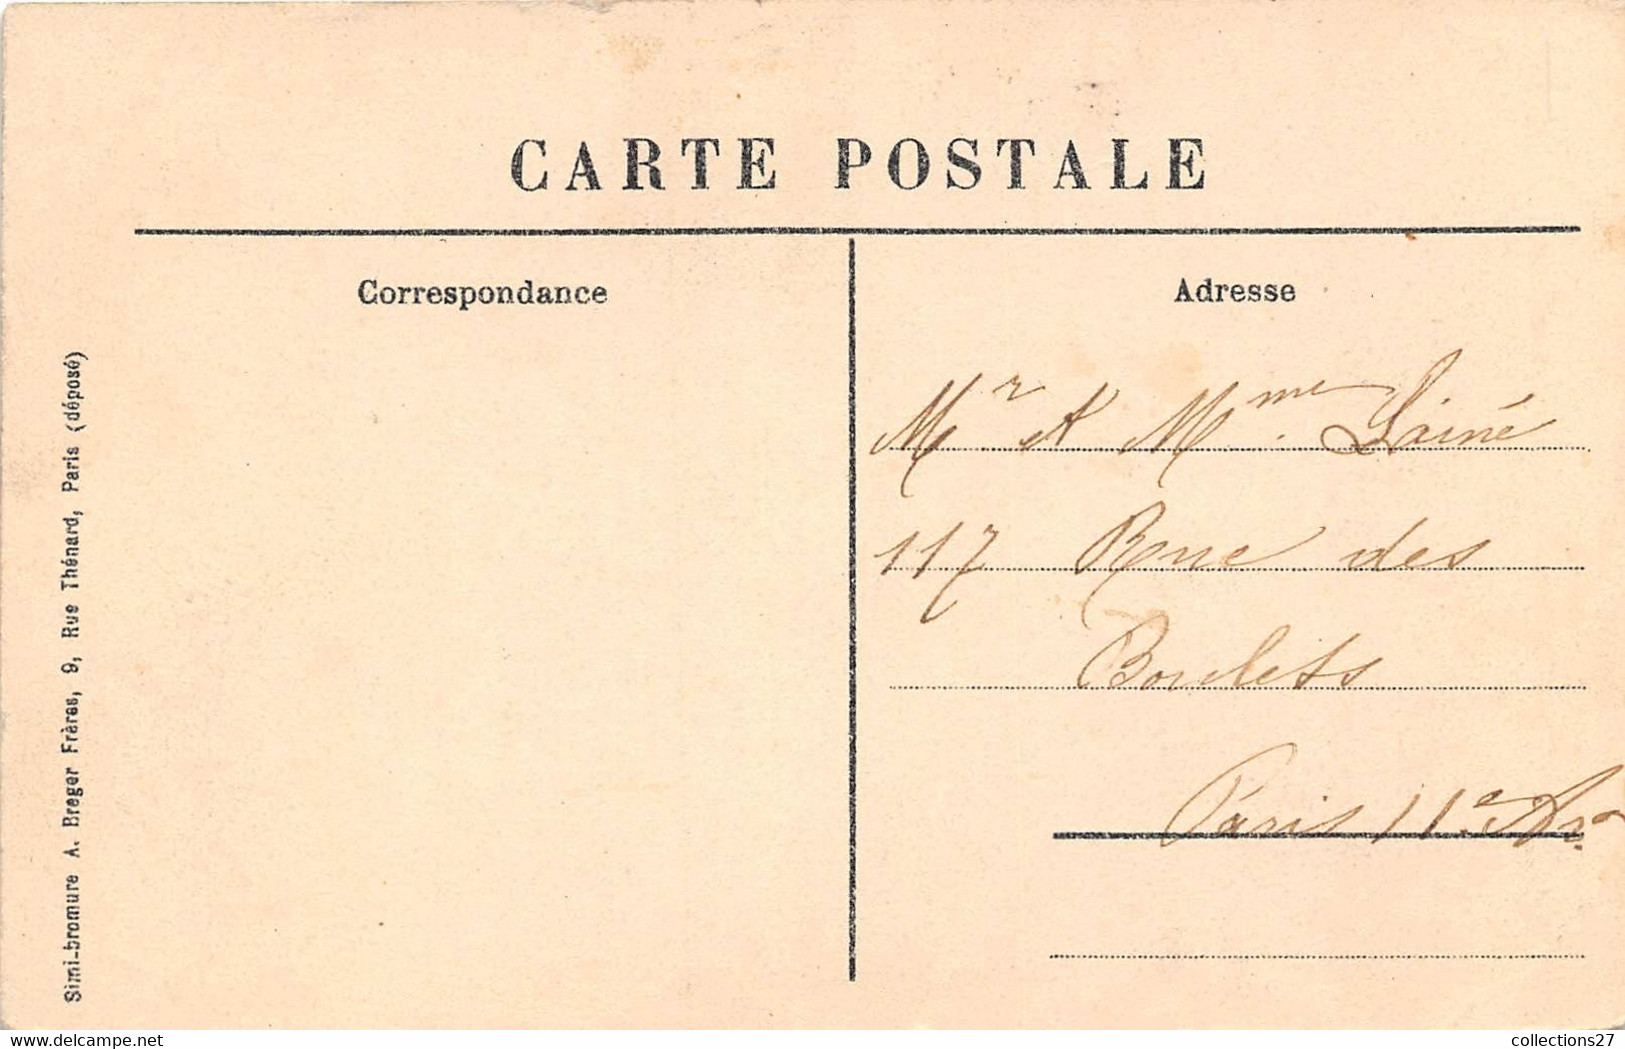 CARTE POSTALE
Correspondance
Adresse
Mr et Mme. Lainé
117 Rue des
Boulets
Paris 11e Ar.
Simi-bromure A. Breger Frères, 9, Rue Thénard, Paris (déposé)
delcampe.net
collections27